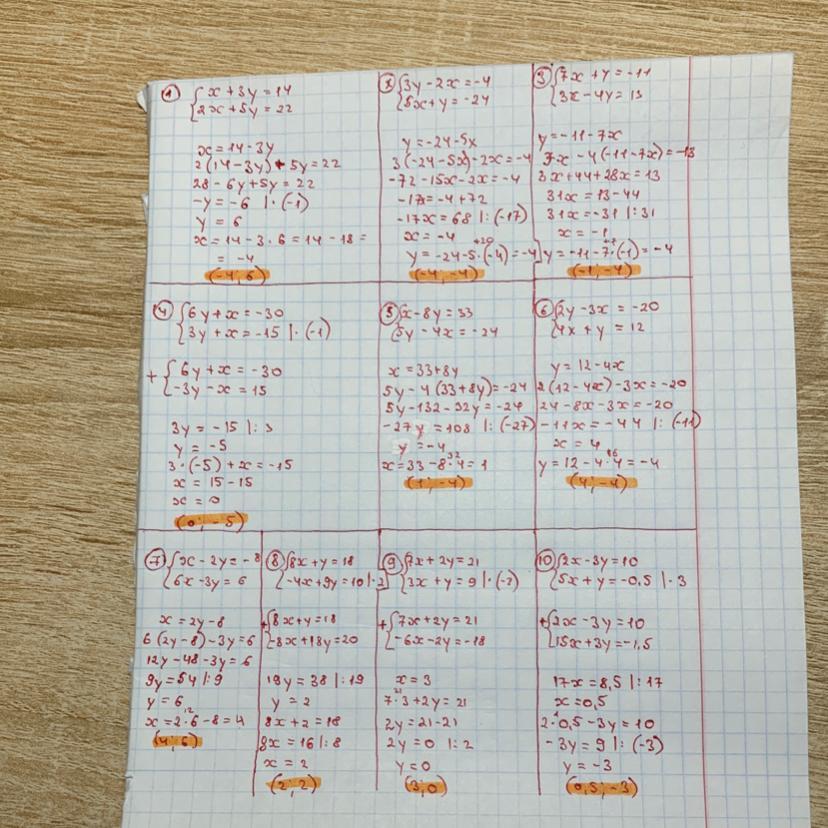 1
x + 3y = 14
2x + 5y = 22
x = 14 - 3y
2(14 - 3y) + 5y = 22
28 - 6y + 5y = 22
-y = -6 |·(-1)
y = 6
x = 14 - 3·6 = 14 - 18 =
= -4
(-4; 6)
2
3y - 2x = -4
5x + y = -24
y = -24 - 5x
3(-24 - 5x) - 2x = -4
-72 - 15x - 2x = -4
-17x = -4 + 72
-17x = 68 |:(-17)
x = -4
+20
y = -24 - 5·(-4) = -4
(-4; -4)
3
7x + y = -11
3x - 4y = 13
y = -11 - 7x
3x - 4(-11 - 7x) = 13
3x + 44 + 28x = 13
31x = 13 - 44
31x = -31 |:31
x = -1
+7
y = -11 - 7·(-1) = -4
(-1; -4)
4
6y + x = -30
3y + x = -15 |·(-1)
+
6y + x = -30
-3y - x = 15
3y = -15 |:3
y = -5
3·(-5) + x = -15
x = 15 - 15
x = 0
(0; -5)
5
x - 8y = 33
5y - 4x = -24
x = 33 + 8y
5y - 4(33 + 8y) = -24
5y - 132 - 32y = -24
-27y = 108 |:(-27)
y = -4
32
x = 33 - 8·4 = 1
(1; -4)
6
2y - 3x = -20
4x + y = 12
y = 12 - 4x
2(12 - 4x) - 3x = -20
24 - 8x - 3x = -20
-11x = -44 |:(-11)
x = 4
16
y = 12 - 4·4 = -4
(4; -4)
7
x - 2y = -8
6x - 3y = 6
x = 2y - 8
6(2y - 8) - 3y = 6
12y - 48 - 3y = 6
9y = 54 |:9
y = 6
12
x = 2·6 - 8 = 4
(4; 6)
8
8x + y = 18
-4x + 9y = 10 |·2
+
8x + y = 18
-8x + 18y = 20
19y = 38 |:19
y = 2
8x + 2 = 18
8x = 16 |:8
x = 2
(2; 2)
9
7x + 2y = 21
3x + y = 9 |·(-2)
+
7x + 2y = 21
-6x - 2y = -18
x = 3
21
7·3 + 2y = 21
2y = 21 - 21
2y = 0 |:2
y = 0
(3; 0)
10
2x - 3y = 10
5x + y = -0,5 |·3
+
2x - 3y = 10
15x + 3y = -1,5
17x = 8,5 |:17
x = 0,5
1
2·0,5 - 3y = 10
-3y = 9 |:(-3)
y = -3
(0,5; -3)